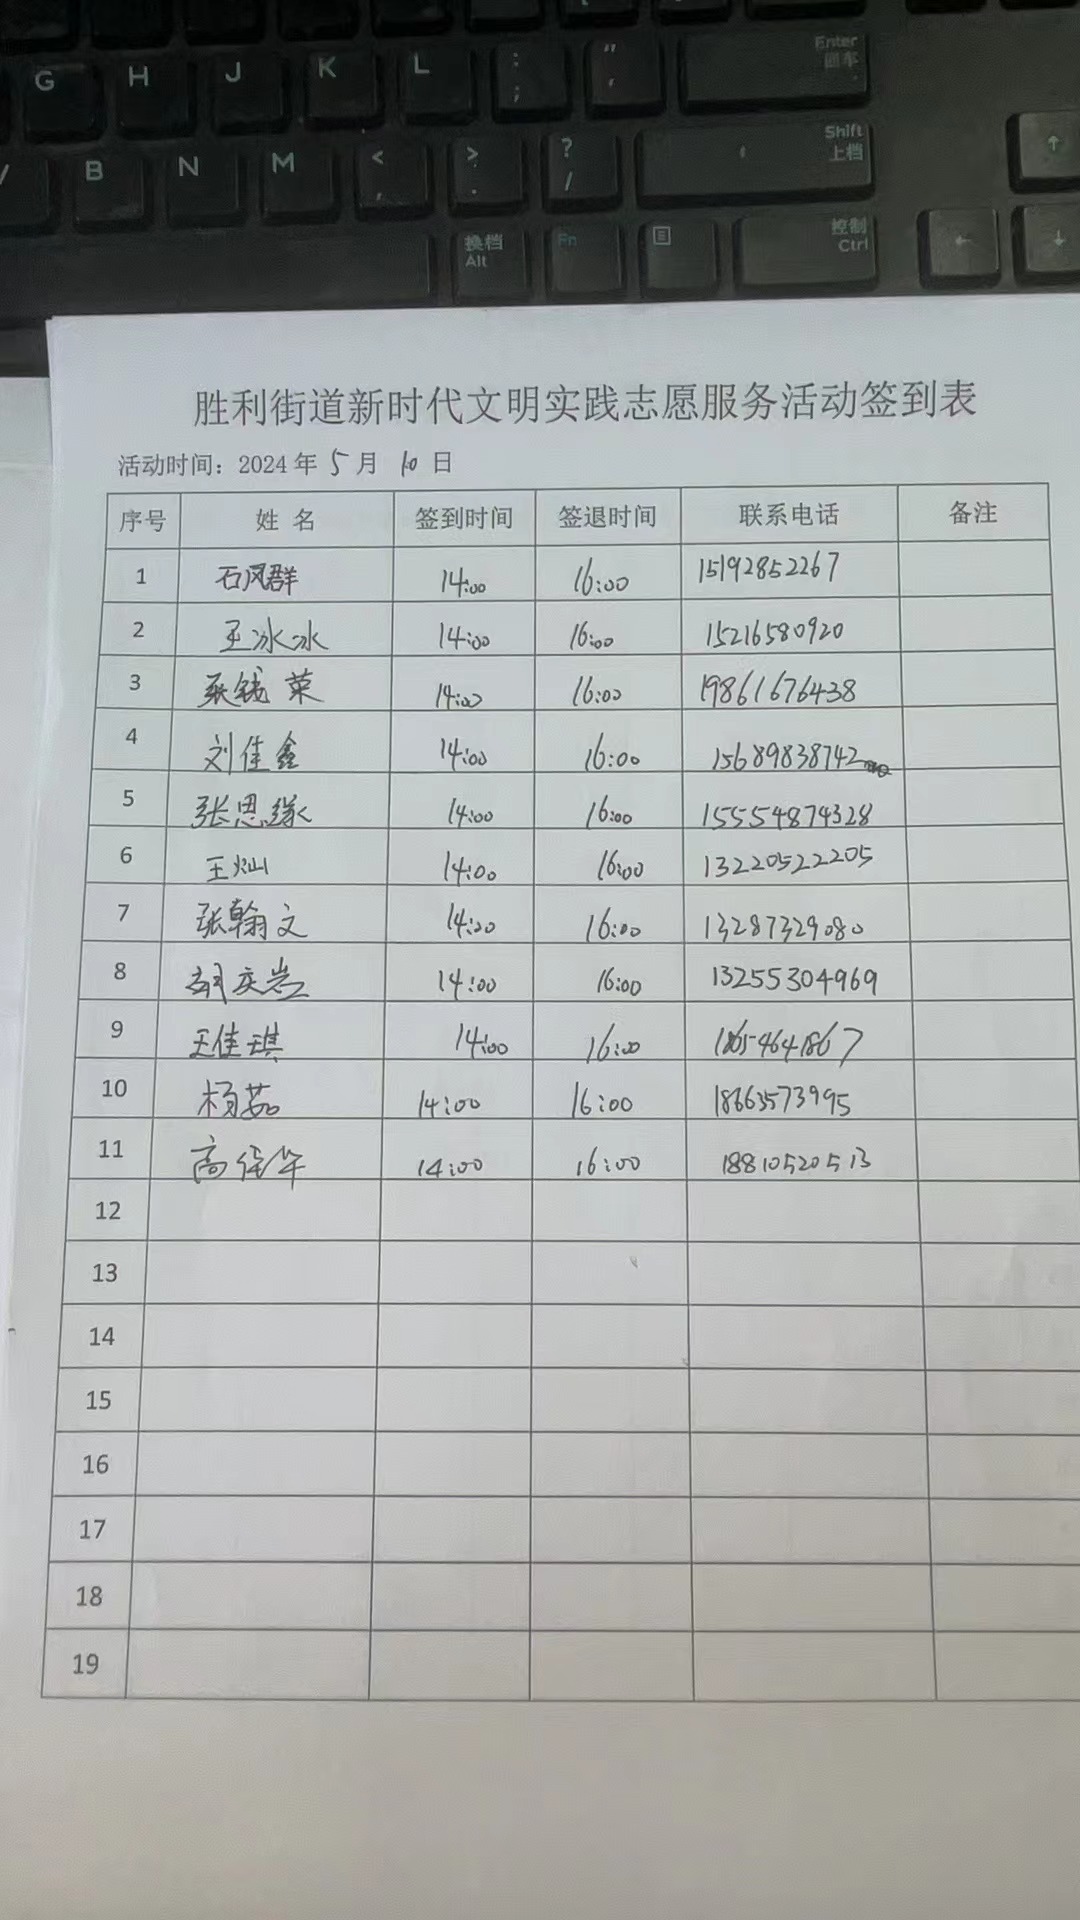 G H J K L : ; " ' Enter 回车
B N M < , > . ? / Shift 上档 ↑
换档 Alt Fn 控制 Ctrl ← ↓
胜利街道新时代文明实践志愿服务活动签到表
活动时间：2024 年 5 月 10 日
序号 姓 名 签到时间 签退时间 联系电话 备注
1 石凤群 14:00 16:00 15192852267
2 王冰冰 14:00 16:00 15216580920
3 张钱荣 14:00 16:00 19861676438
4 刘佳鑫 14:00 16:00 15689838742
5 张思缘 14:00 16:00 15554874328
6 王灿 14:00 16:00 13220522205
7 张翰文 14:00 16:00 13287329080
8 胡庆岩 14:00 16:00 13255304969
9 王佳琪 14:00 16:00 18654641867
10 杨茹 14:00 16:00 18663573995
11 高 14:00 16:00 18810520513
12
13
14
15
16
17
18
19